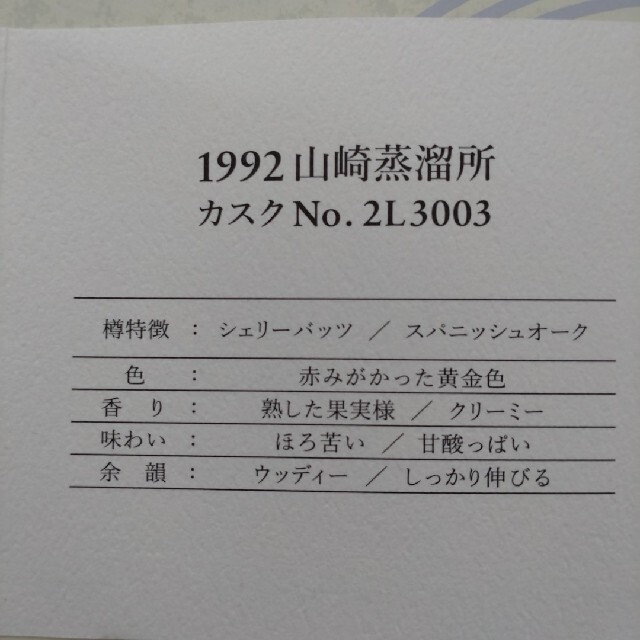 1992 山崎蒸溜所
カスク No. 2L3003
樽特徴 : シェリーバッツ / スパニッシュオーク
色 : 赤みがかった黄金色
香り : 熟した果実様 / クリーミー
味わい : ほろ苦い / 甘酸っぱい
余韻 : ウッディー / しっかり伸びる